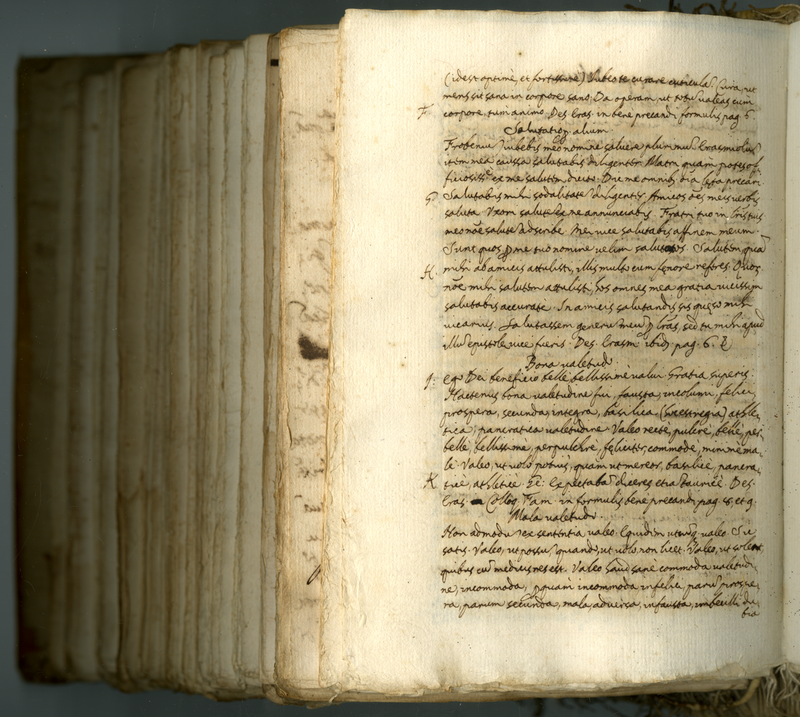 (idest optimè, et fortissimè) Jubeo te curare cuticulã. Cura, ut
mens sit sana in corpore sano. Da operam, ut totus valeas cum
F. corpore, tum animo. Des. Eras. in bene precandi formulis pag. 6.
Salutationum alium
Frobenium jubebis meo nomine salvere plurimum. Erasmiolum
item mea caussa salutabis diligenter. Matri quam potes of-
ficiosissè ex me salutem dicito. Die me omnibus oĩa læta precari.
G. Salutabis mihi sodalitatẽ diligenter. Amicos oẽs meis verbis
saluta. Uxori salutẽ ex me annunciabis. Fratri tuo in
meo nõe salutẽ adscribe. Mea vice salutabis affinem meum.
Sunt quos per me tuo nomine velim salutatos. Salutem quã
H. mihi ab amicis attulisti, illis multo cum fœnore referes. Quot
nõe mihi salutẽ attulisti, hos omnes mea gratia vicissim
salutabis accurate. In amicis salutandis sis quæso mihi
vicarius. Salutassem generũ meũ Eras, sed tu mihi apud
illũ epistolæ vice fueris. Des. Erasm. ibid. pag. 6.
Bona valetud.
I. Eqd. Dei beneficio bellè bellissimè valui. Gratia superis.
Hactenus bona valetudine fui, fausta, incolumi, felici,
prospera, secunda, integra, basilica (hoc est regia) athle-
tica, pancratica valetudine. Valeo rectè, pulcrè, bellè, per-
bellè, bellissimè, perpulchrè, feliciter, commodè, minimè ma-
lè. Valeo, ut volo potius, quam ut mereor, basilicè, pancra-
K ticè, athleticè. Ec: Expectabã diceres etiã taurieè. Des.
Eras. Colloq. Fam. in formulis bene precandi pag. 8. et 9.
Mala valetud.
Non admodũ ex sententia valeo. Equidem utcunq valeo. Sic
satis. Valeo, ut possũ, quandò, ut volo non licet. Valeo, ut solent
quibus cũ medicis res est. Valeo haud sane commoda valetudi-
ne, incommoda, perquam incommoda infelici, parũ prospe-
ra, parum secunda, mala, adversa, infausta, imbecilli du-
bia